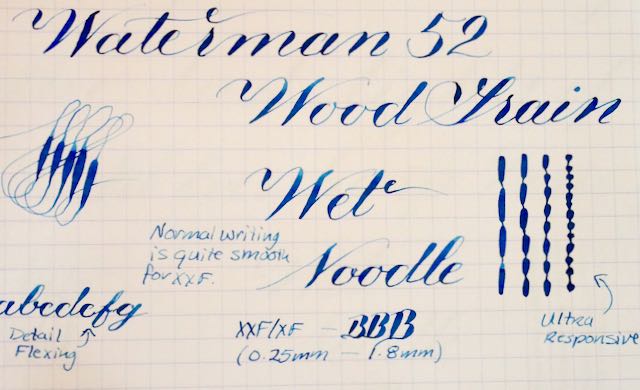 Waterman 52
Wood Grain
Wet
Noodle
Normal writing
is quite smooth
for xxF.
abcdefg
Detail
Flexing
XXF/XF – BBB
(0.25mm – 1.8mm)
Ultra
Responsive